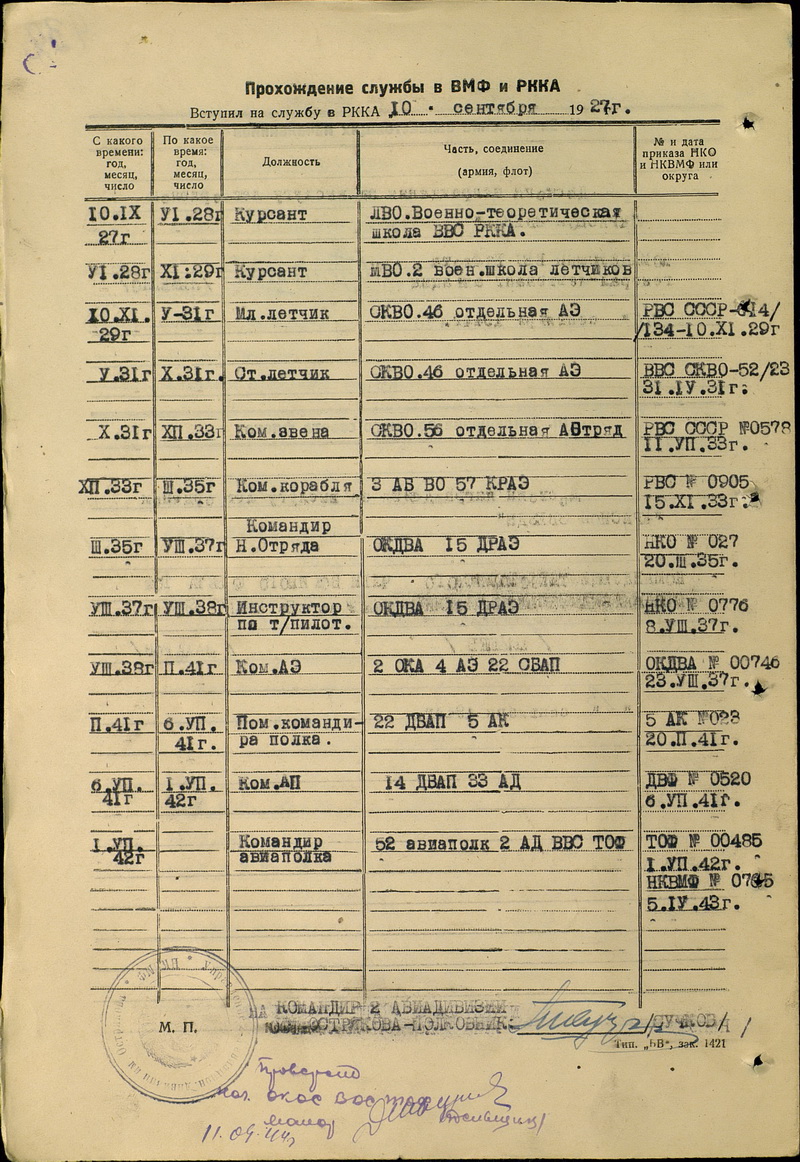 Прохождение службы в ВМФ и РККА
Вступил на службу в РККА 10 сентября 1927г.
С какого времени: год, месяц, число
По какое время: год, месяц, число
Должность
Часть, соединение (армия, флот)
№ и дата приказа НКО и НКВМФ или округа
10.IX У1.28г Курсант ЛВО.Военно-теоретическая
27г школа ВВС РККА.
У1.28г XI:29г Курсант МВО.2 воен.школа летчиков
10.XI. У-31г Мл.летчик СКВО.46 отдельная АЭ РВС СССР-614/
29г /134-10.XI.29г
У.31г X.31г. Ст.летчик СКВО.46 отдельная АЭ ВВС СКВО-52/23
31.IУ.31г.
X.31г ХП.33г Ком.звена СКВО.56 отдельная АОтряд РВС СССР №0578
II.УП.33г.
ХП.33г Ш.35г Ком.корабля 3 АБ ВО 57 КРАЭ РВС № 0905
15.XI.33г.
Командир
Ш.35г УШ.37г Н.Отряда ОКДВА 15 ДРАЭ НКО № 027
20.Ш.35г.
УШ.37г УШ.38г Инструктор ОКДВА 15 ДРАЭ НКО № 0776
по т/пилот. 8.УШ.37г.
УШ.38г П.41г Ком.АЭ 2 ОКА 4 АЭ 22 СБАП ОКДВА № 00746
23.УШ.37г.
П.41г 6.УП. Пом.команди- 22 ДБАП 5 АК 5 АК №023
41г. ра полка. 20.П.41г.
6.УП. I.УП. Ком.АП 14 ДБАП 33 АД ДВФ № 0520
41г 42г 6.УП.41г.
I.УП. Командир 52 авиаполк 2 АД ВВС ТОФ ТОФ № 00485
42г авиаполка I.УП.42г.
НКВМФ №
5.IУ.43г.
М. П.
КОМАНДИР 2 АВИАДИВИЗИИ
ОСТРЯКОВА-ПОЛКОВНИК: /СУЧКОВ/
Тип. „БВ“, зак. 1421
Проверено
майор
11.09.44г